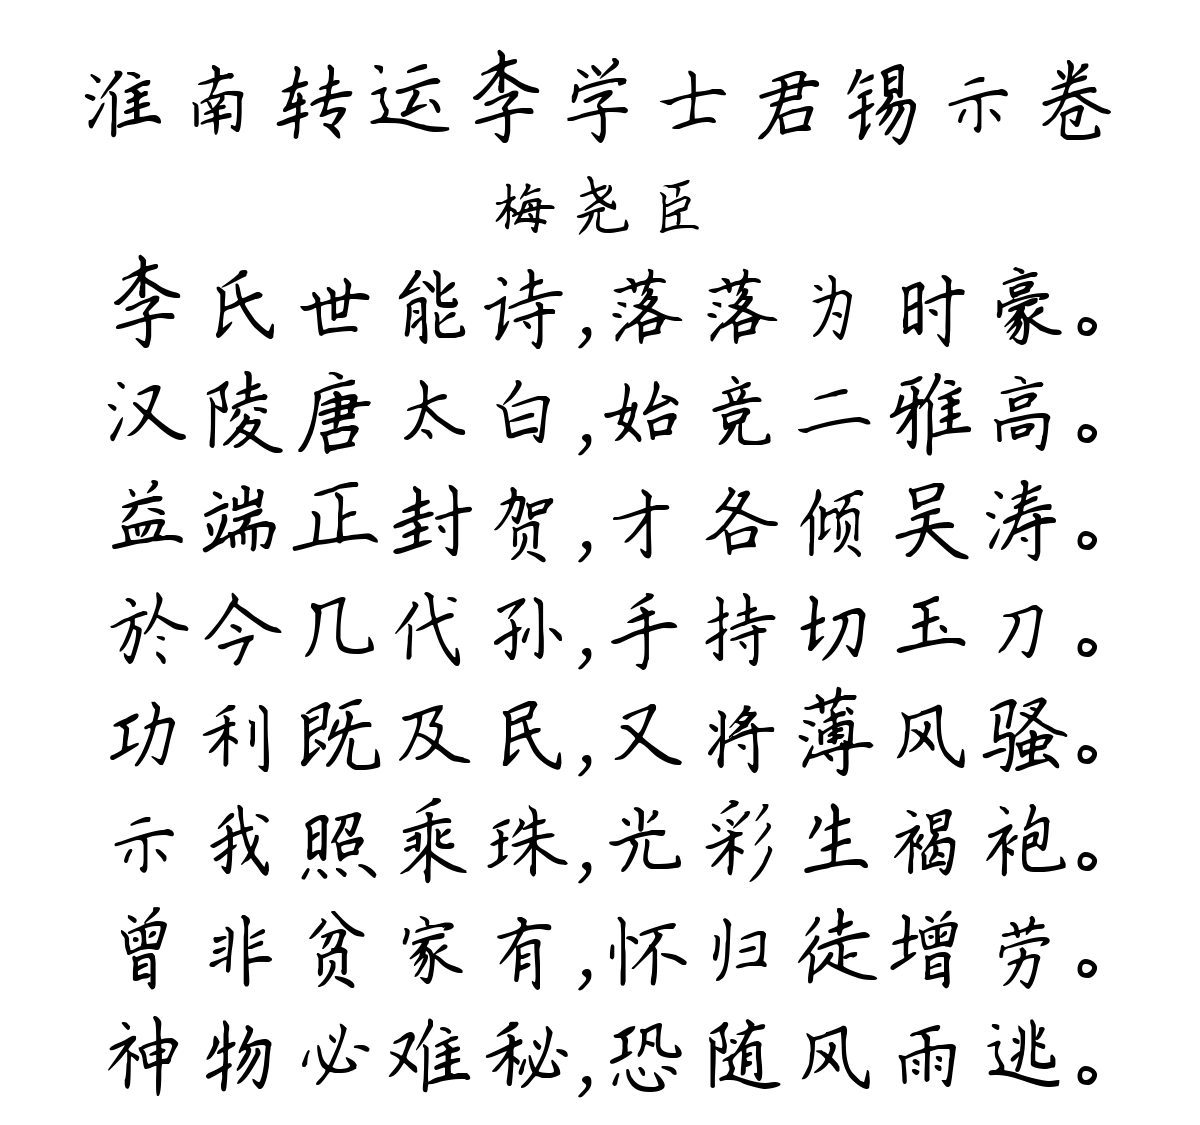 淮南转运李学士君锡示卷
梅尧臣
李氏世能诗,落落为时豪。
汉陵唐太白,始竞二雅高。
益端正封贺,才各倾吴涛。
於今几代孙,手持切玉刀。
功利既及民,又将薄风骚。
示我照乘珠,光彩生褐袍。
曾非贫家有,怀归徒增劳。
神物必难秘,恐随风雨逃。